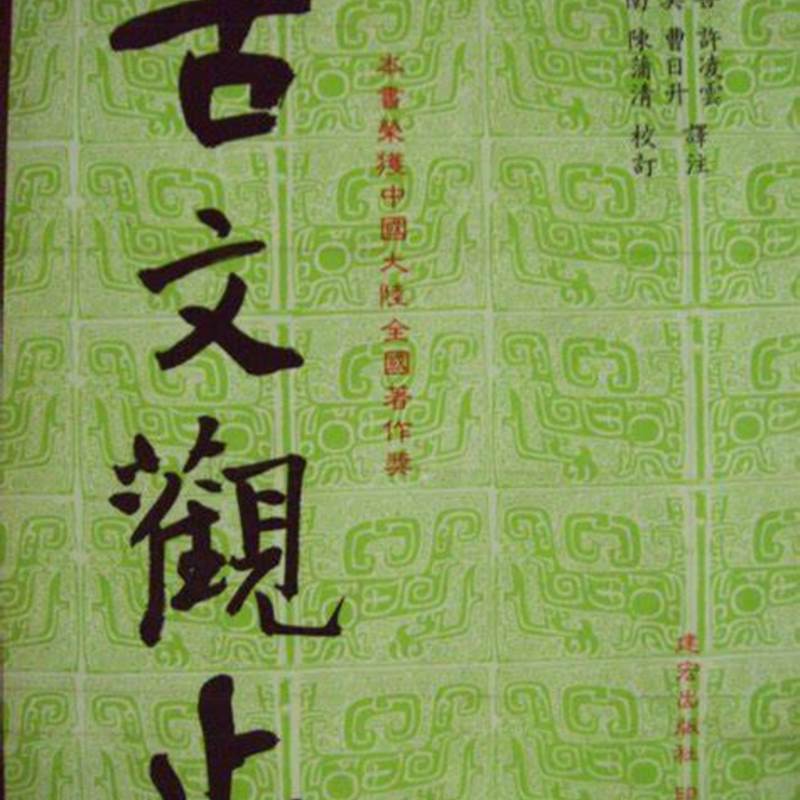 許凌雲 譯注
曹日升
陳蒲清 校訂
本書榮獲中國大陸全國著作獎
古文觀止
建宏出版社 印